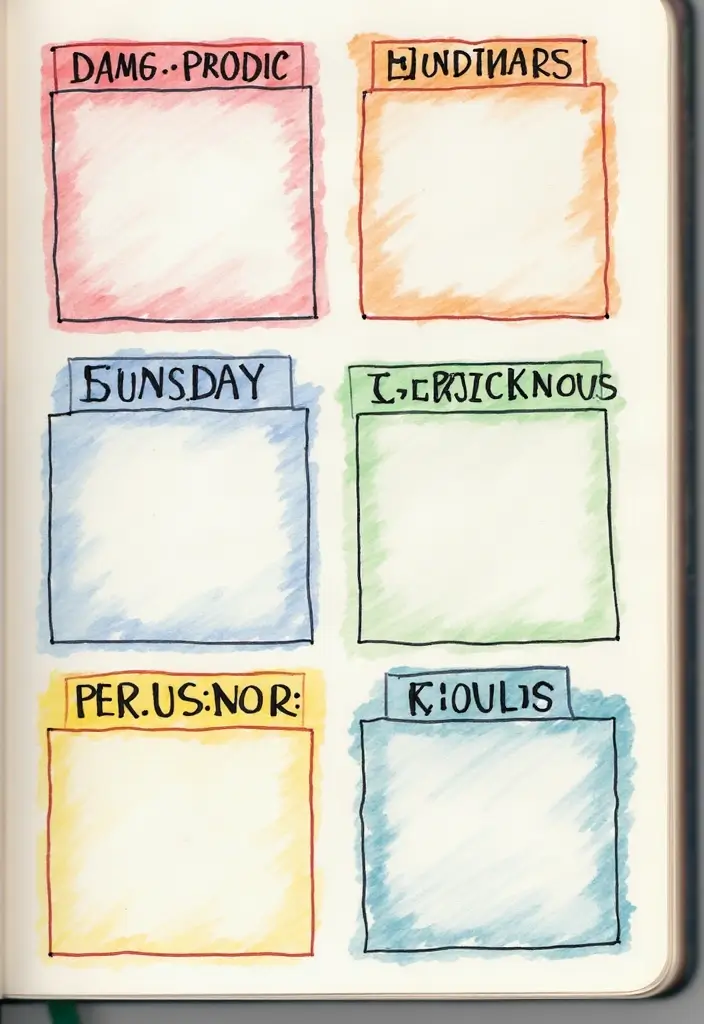 DAMG.·PRODIC
UNDTHARS
SUNSDAY
CKNOUS
PER.US:NOR:
K:OULIS